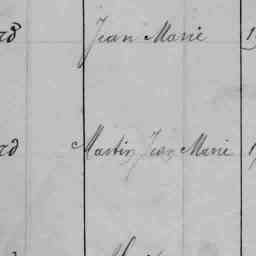 rd Jean Marie 1
rd Martin Jean Marie 1